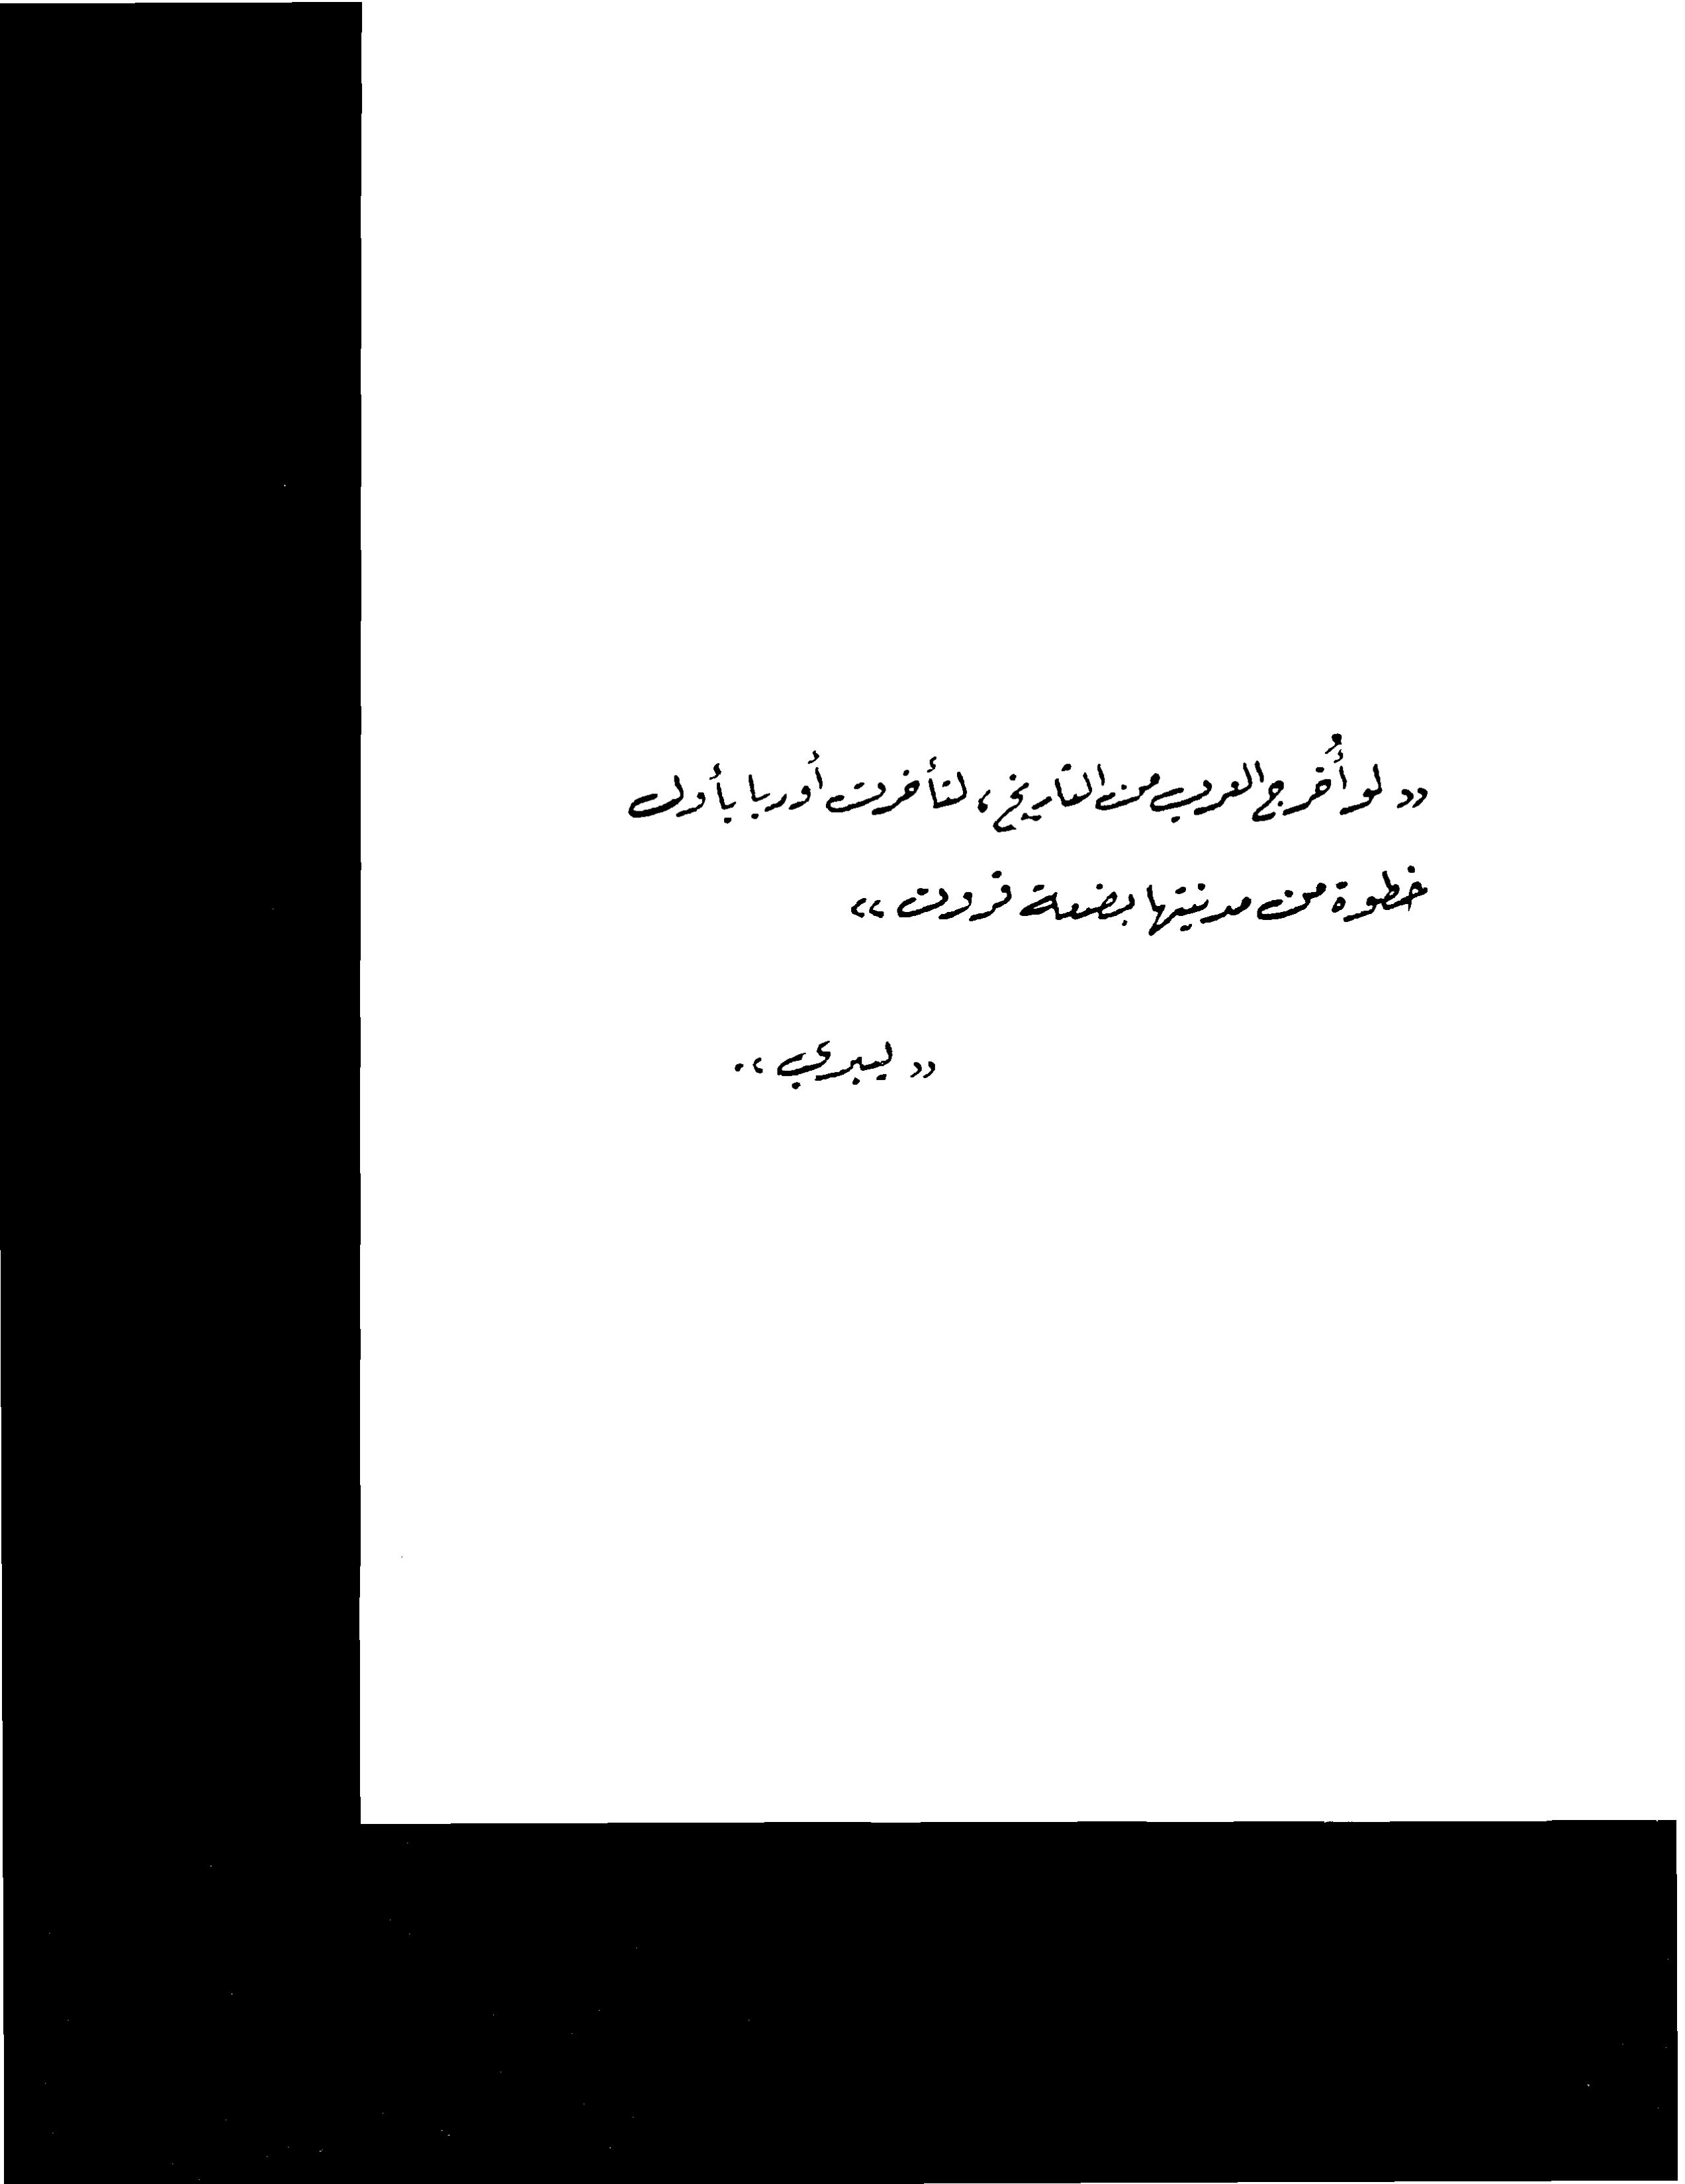 « لو أُخرج العرب من التاريخ، لتأخرت أوربا بأولى
خطوة من مدنيتها بضعة قرون »
« ليبري ».